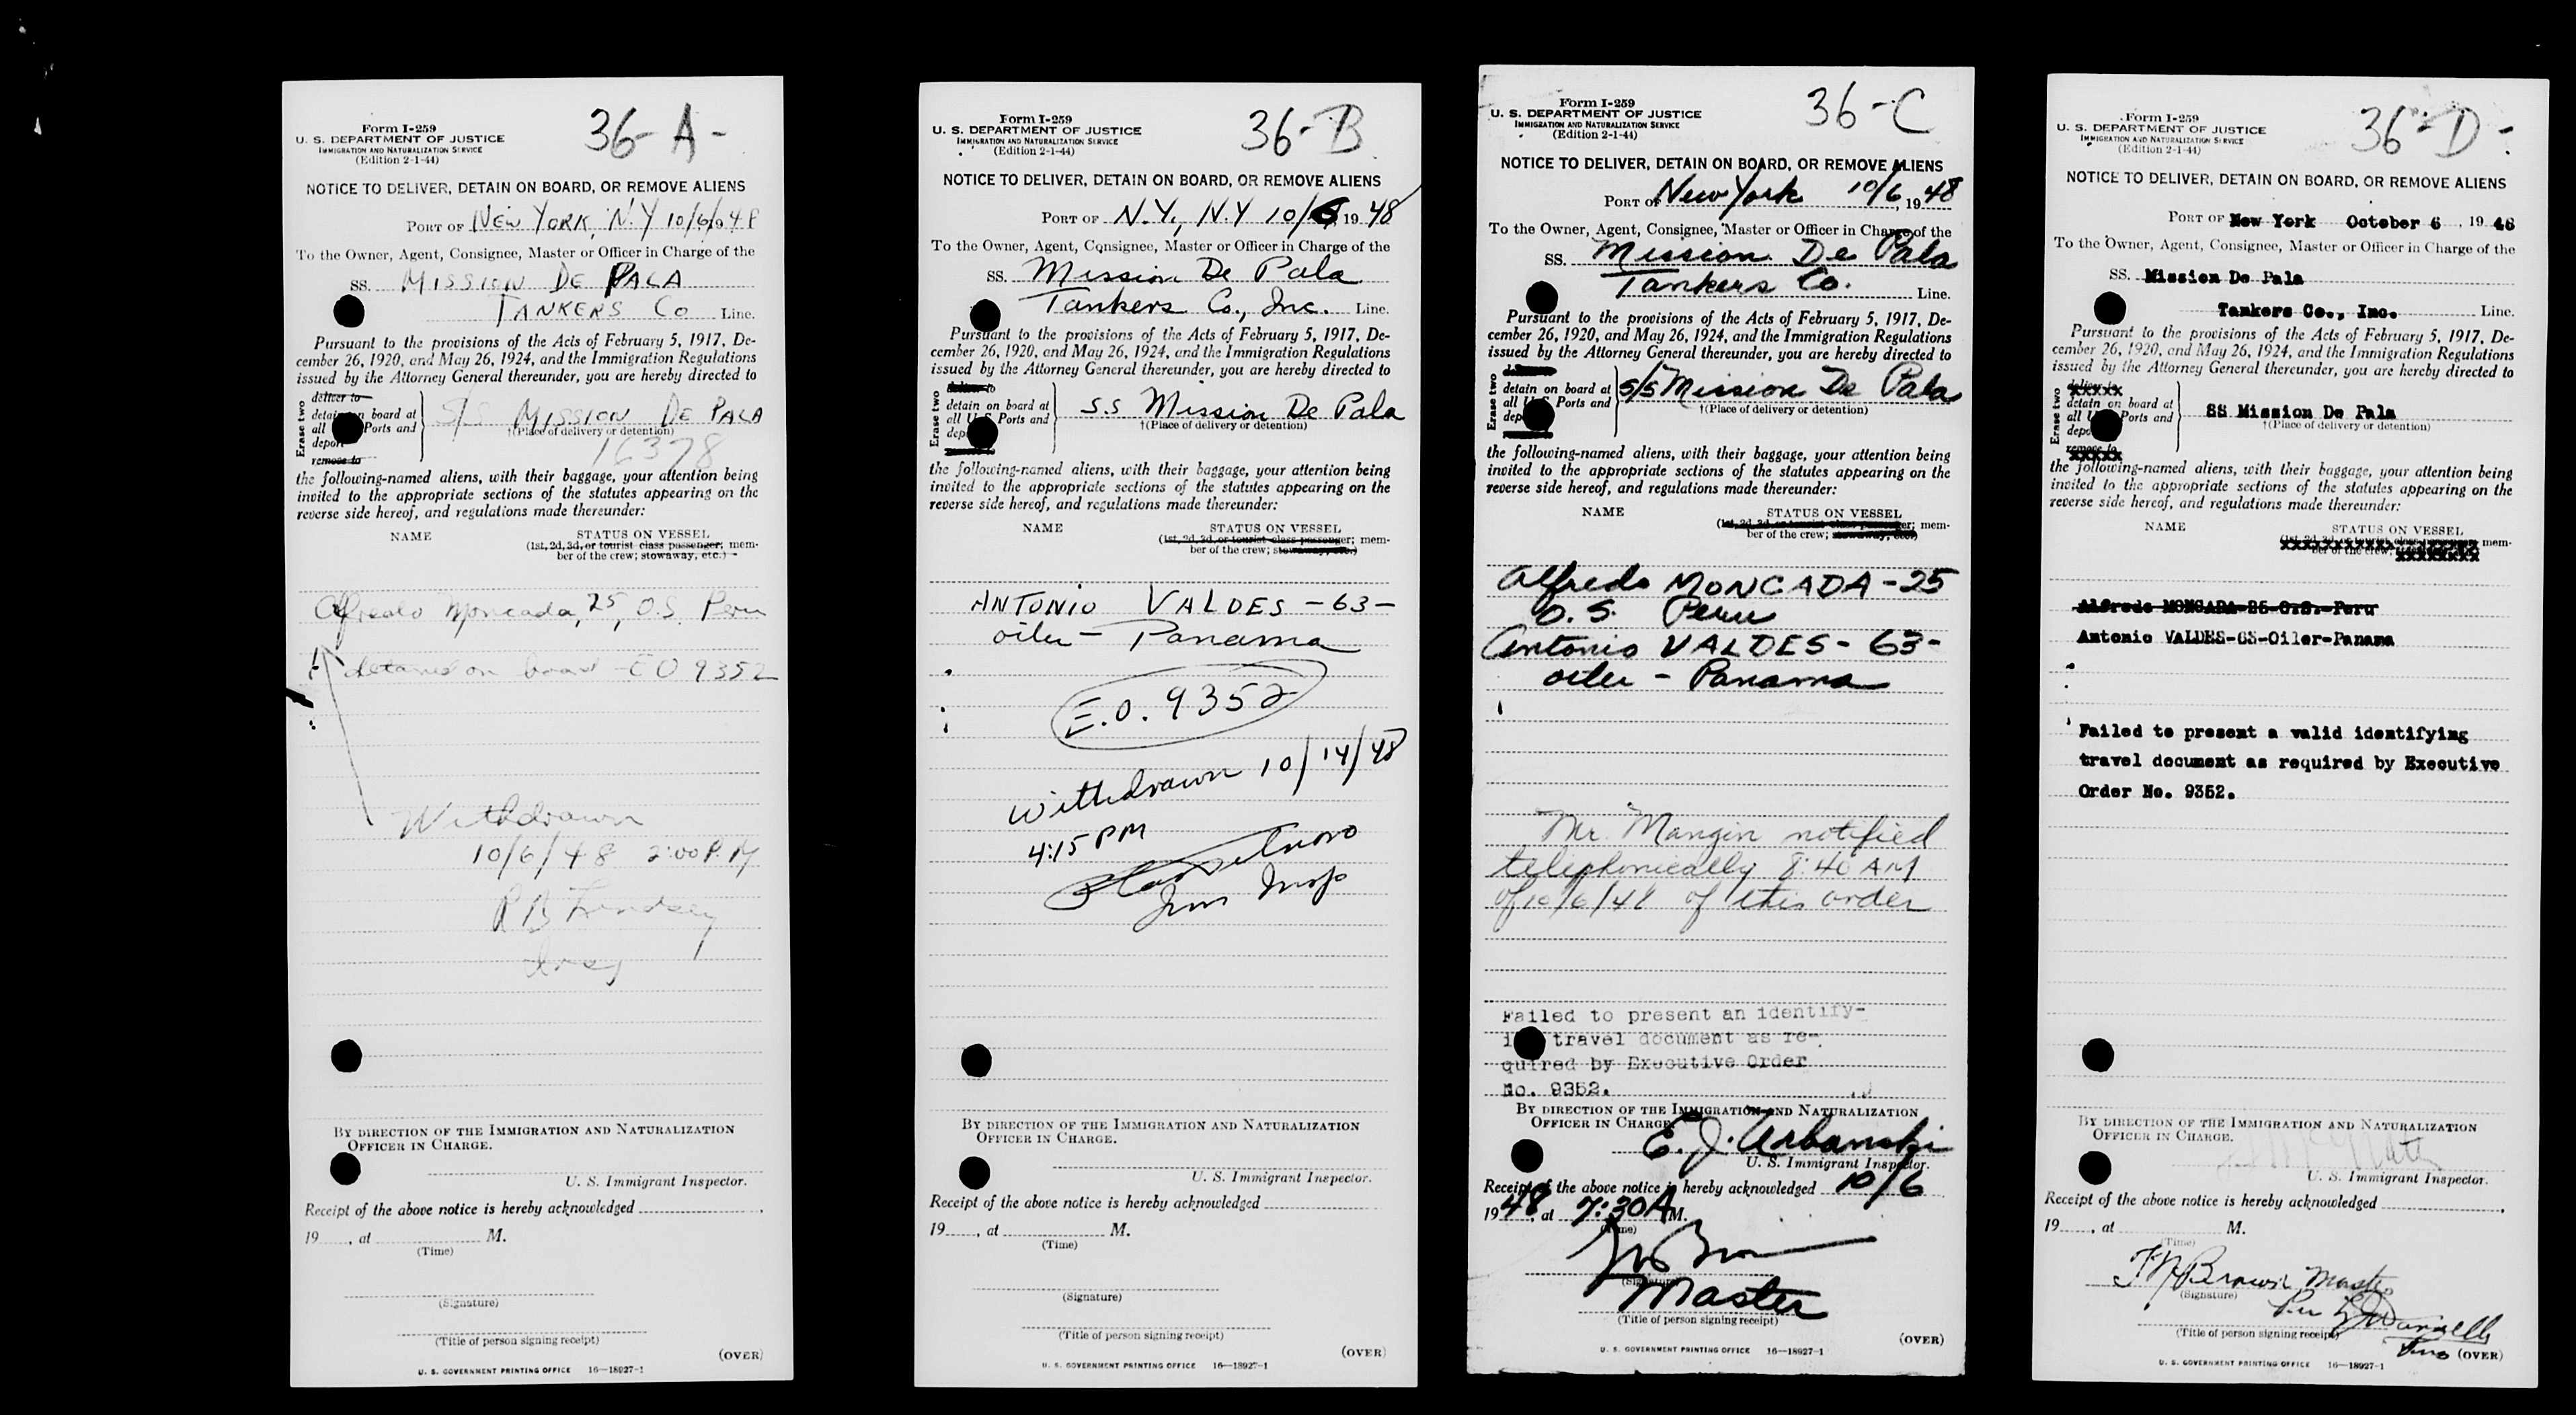 Form I-259
U. S. DEPARTMENT OF JUSTICE
IMMIGRATION AND NATURALIZATION SERVICE
(Edition 2-1-44)
36-A-
NOTICE TO DELIVER, DETAIN ON BOARD, OR REMOVE ALIENS
PORT OF NEW YORK, N.Y 10/6/1948
To the Owner, Agent, Consignee, Master or Officer in Charge of the
SS. MISSION DE PALA
TANKERS CO Line.
Pursuant to the provisions of the Acts of February 5, 1917, De-
cember 26, 1920, and May 26, 1924, and the Immigration Regulations
issued by the Attorney General thereunder, you are hereby directed to
Erase two
deliver to
detain on board at
all Ports and
deport
remove to
S/S MISSION DE PALA
†(Place of delivery or detention)
16378
the following-named aliens, with their baggage, your attention being
invited to the appropriate sections of the statutes appearing on the
reverse side hereof, and regulations made thereunder:
NAME STATUS ON VESSEL
(1st, 2d, 3d, or tourist class passenger; mem-
ber of the crew; stowaway, etc.)
Alfredo Moncada, 25, O.S. Peru
detained on board - EO 9352
Withdrawn
10/6/48 2:00 P.M
R B Lindsey
BY DIRECTION OF THE IMMIGRATION AND NATURALIZATION
OFFICER IN CHARGE.
U. S. Immigrant Inspector.
Receipt of the above notice is hereby acknowledged
19 , at M.
(Time)
(Signature)
(Title of person signing receipt)
(OVER)
U. S. GOVERNMENT PRINTING OFFICE 16—18927-1
Form I-259
U. S. DEPARTMENT OF JUSTICE
IMMIGRATION AND NATURALIZATION SERVICE
(Edition 2-1-44)
36-B
NOTICE TO DELIVER, DETAIN ON BOARD, OR REMOVE ALIENS
PORT OF N.Y., N.Y 10/6 1948
To the Owner, Agent, Consignee, Master or Officer in Charge of the
SS. Mission De Pala
Tankers Co., Inc. Line.
Pursuant to the provisions of the Acts of February 5, 1917, De-
cember 26, 1920, and May 26, 1924, and the Immigration Regulations
issued by the Attorney General thereunder, you are hereby directed to
Erase two
deliver to
detain on board at
all Ports and
S.S Mission De Pala
†(Place of delivery or detention)
the following-named aliens, with their baggage, your attention being
invited to the appropriate sections of the statutes appearing on the
reverse side hereof, and regulations made thereunder:
NAME STATUS ON VESSEL
(1st, 2d, 3d, or tourist class passenger; mem-
ber of the crew; stowaway, etc.)
ANTONIO VALDES - 63 -
oiler - Panama
E.O. 9352
Withdrawn 10/14/48
4:15 PM
BY DIRECTION OF THE IMMIGRATION AND NATURALIZATION
OFFICER IN CHARGE.
U. S. Immigrant Inspector.
Receipt of the above notice is hereby acknowledged
19 , at M.
(Time)
(Signature)
(Title of person signing receipt)
(OVER)
U. S. GOVERNMENT PRINTING OFFICE 16—18927-1
Form I-259
U. S. DEPARTMENT OF JUSTICE
IMMIGRATION AND NATURALIZATION SERVICE
(Edition 2-1-44)
36-C
NOTICE TO DELIVER, DETAIN ON BOARD, OR REMOVE ALIENS
PORT OF New York 10/6, 1948
To the Owner, Agent, Consignee, Master or Officer in Charge of the
SS. Mission De Pala
Tankers Co. Line.
Pursuant to the provisions of the Acts of February 5, 1917, De-
cember 26, 1920, and May 26, 1924, and the Immigration Regulations
issued by the Attorney General thereunder, you are hereby directed to
Erase two
detain on board at
all Ports and
S/S Mission De Pala
†(Place of delivery or detention)
the following-named aliens, with their baggage, your attention being
invited to the appropriate sections of the statutes appearing on the
reverse side hereof, and regulations made thereunder:
NAME STATUS ON VESSEL
(1st, 2d, 3d, or tourist class passenger; mem-
ber of the crew; stowaway, etc.)
Alfredo MONCADA - 25
O.S. Peru
Antonio VALDES - 63 -
oiler - Panama
Mr. Mangin notified
telephonically 8:40 AM
of 10/6/48 of this order
Failed to present an identify-
travel document as re-
quired by Executive Order
No. 9352.
BY DIRECTION OF THE IMMIGRATION AND NATURALIZATION
OFFICER IN CHARGE
E. J. Urbanski
U. S. Immigrant Inspector.
Receipt of the above notice is hereby acknowledged 10/6
1948, at 7:30 A M.
(Time)
(Signature)
Master
(Title of person signing receipt)
(OVER)
U. S. GOVERNMENT PRINTING OFFICE 16—18927-1
Form I-259
U. S. DEPARTMENT OF JUSTICE
IMMIGRATION AND NATURALIZATION SERVICE
(Edition 2-1-44)
36-D-
NOTICE TO DELIVER, DETAIN ON BOARD, OR REMOVE ALIENS
PORT OF New York October 6, 1948
To the Owner, Agent, Consignee, Master or Officer in Charge of the
SS. Mission De Pala
Tankers Co., Inc. Line.
Pursuant to the provisions of the Acts of February 5, 1917, De-
cember 26, 1920, and May 26, 1924, and the Immigration Regulations
issued by the Attorney General thereunder, you are hereby directed to
Erase two
deliver to
detain on board at
all Ports and
remove to
SS Mission De Pala
†(Place of delivery or detention)
the following-named aliens, with their baggage, your attention being
invited to the appropriate sections of the statutes appearing on the
reverse side hereof, and regulations made thereunder:
NAME STATUS ON VESSEL
(1st, 2d, 3d, or tourist class passenger; mem-
ber of the crew;
Alfredo MONCADA-25-O.S.-Peru
Antonio VALDES-63-Oiler-Panama
Failed to present a valid identifying
travel document as required by Executive
Order No. 9352.
BY DIRECTION OF THE IMMIGRATION AND NATURALIZATION
OFFICER IN CHARGE.
U. S. Immigrant Inspector.
Receipt of the above notice is hereby acknowledged
19 , at M.
(Time)
Brown Master
(Signature)
Per
(Title of person signing receipt)
(OVER)
U. S. GOVERNMENT PRINTING OFFICE 16—18927-1